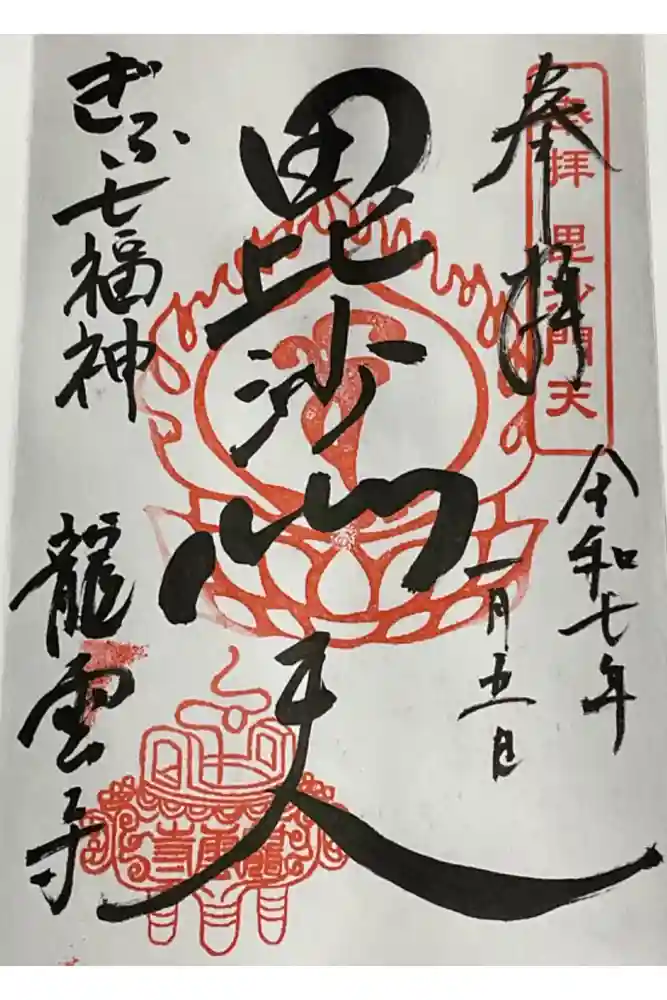 奉拝
奉拝 毘沙門天
令和七年
一月五日
毘沙門天
ぎふ七福神
龍雲寺
龍雲寺